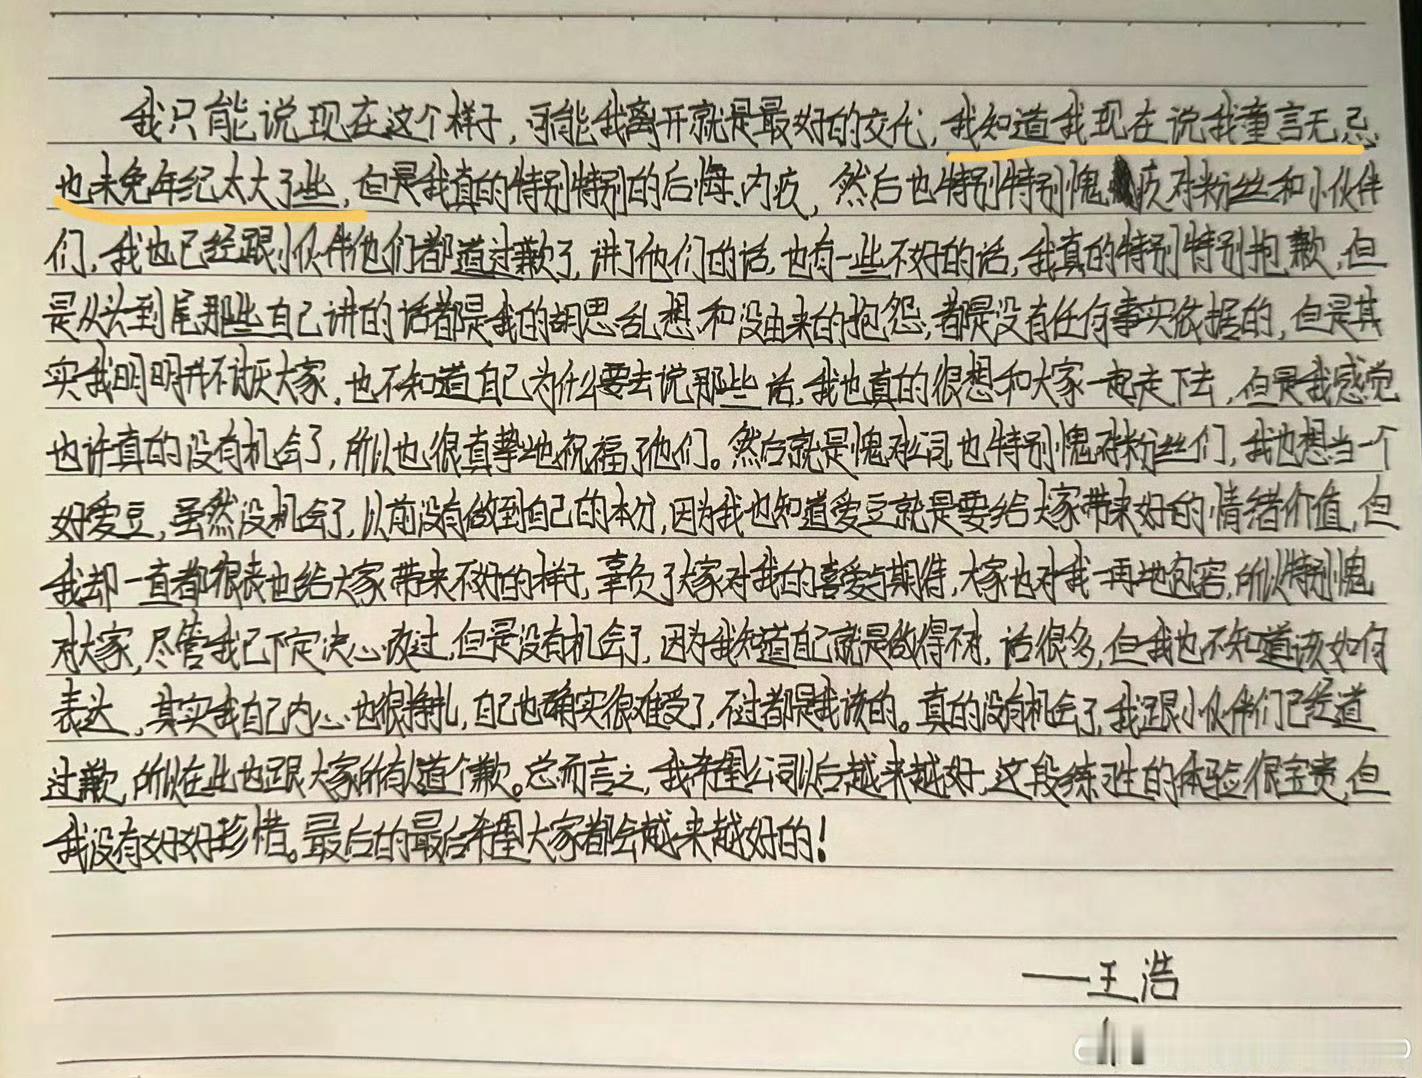 我只能说现在这个样子，可能我离开就是最好的交代，我知道我现在说我童言无忌，
也未免年纪太大了些，但是我真的特别特别的后悔、内疚，然后也特别特别愧疚对粉丝和小伙伴
们，我也已经跟小伙伴他们都道过歉了，讲了他们的话，也有一些不好的话，我真的特别特别抱歉，但
是从头到尾那些自己讲的话都是我的胡思乱想和没由来的抱怨，都是没有任何事实依据的，但是其
实我明明并不讨厌大家，也不知道自己为什么要去说那些话，我也真的很想和大家一起走下去，但是我感觉
也许真的没有机会了，所以也很真挚地祝福了他们。然后就是愧对公司，也特别愧对粉丝们，我也想当一个
好爱豆，虽然没机会了，以前没有做到自己的本分，因为我也知道爱豆就是要给大家带来好的情绪价值，但
我却一直都很丧也给大家带来不好的样子，辜负了大家对我的喜爱与期待，大家也对我一再地包容，所以特别愧
对大家，尽管我已下定决心改过，但是没有机会了，因为我知道自己就是做得不对，话很多，但我也不知道该如何
表达，其实我自己内心也很挣扎，自己也确实很难受了，不过都是我该的。真的没有机会了，我跟小伙伴们已经道
过歉，所以在此也跟大家所有人道个歉。总而言之，我希望公司以后越来越好，这段练习生的体验很宝贵，但
我没有好好珍惜。最后的最后希望大家都会越来越好的！
——王浩